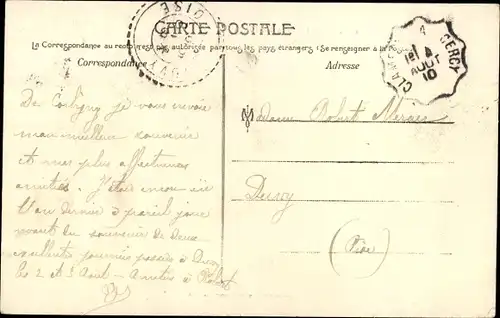 CARTE POSTALE
La Correspondance au recto n'est pas autorisée par tous les pays étrangers (Se renseigner à la Poste)
Correspondance
Adresse
OISE
CLAMECY A CERCY
1E 4
AOUT
10
De Corbigny je vous envoie
mon meilleur souvenir
et mes plus affectueuses
amitiés. J'étais
L'an dernier à pareil jour
souvenir de deux
excellentes journées passées à
les 2 et 3 Août - Amitiés à Robert
Madame Robert
(Oise)